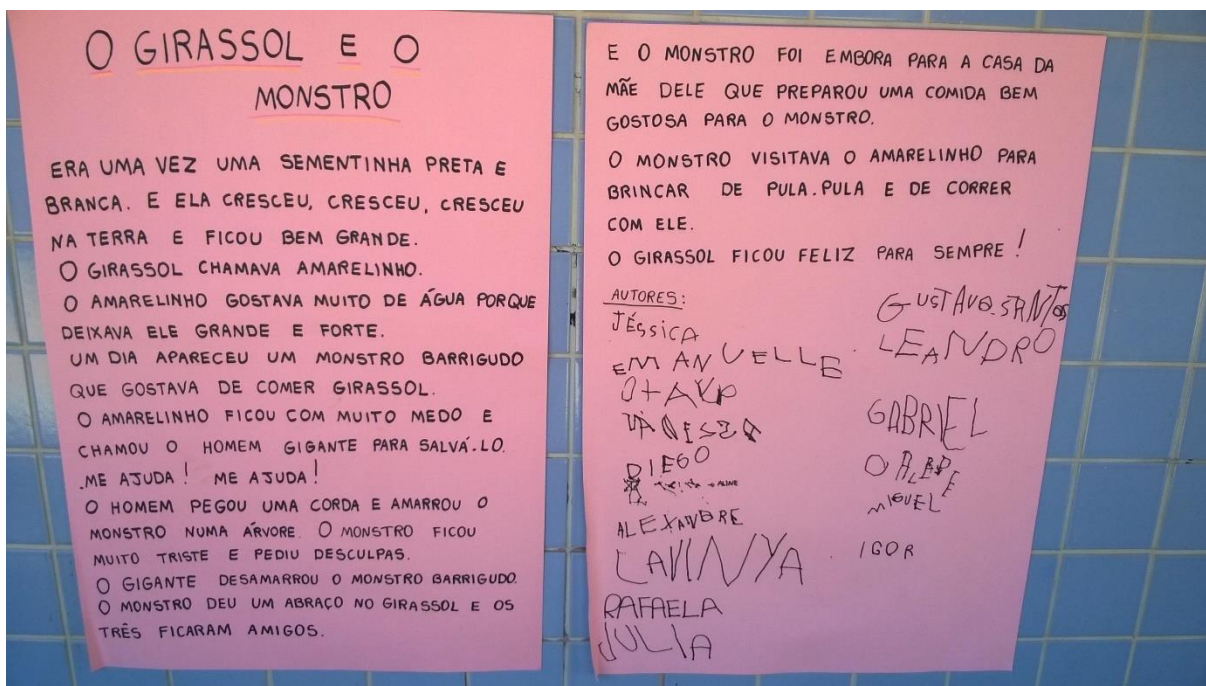 O GIRASSOL E O
MONSTRO
ERA UMA VEZ UMA SEMENTINHA PRETA E
BRANCA. E ELA CRESCEU, CRESCEU, CRESCEU
NA TERRA E FICOU BEM GRANDE.
O GIRASSOL CHAMAVA AMARELINHO.
O AMARELINHO GOSTAVA MUITO DE ÁGUA PORQUE
DEIXAVA ELE GRANDE E FORTE.
UM DIA APARECEU UM MONSTRO BARRIGUDO
QUE GOSTAVA DE COMER GIRASSOL.
O AMARELINHO FICOU COM MUITO MEDO E
CHAMOU O HOMEM GIGANTE PARA SALVÁ-LO.
.ME AJUDA! ME AJUDA!
O HOMEM PEGOU UMA CORDA E AMARROU O
MONSTRO NUMA ÁRVORE. O MONSTRO FICOU
MUITO TRISTE E PEDIU DESCULPAS.
O GIGANTE DESAMARROU O MONSTRO BARRIGUDO.
O MONSTRO DEU UM ABRAÇO NO GIRASSOL E OS
TRÊS FICARAM AMIGOS.
E O MONSTRO FOI EMBORA PARA A CASA DA
MÃE DELE QUE PREPAROU UMA COMIDA BEM
GOSTOSA PARA O MONSTRO.
O MONSTRO VISITAVA O AMARELINHO PARA
BRINCAR DE PULA-PULA E DE CORRER
COM ELE.
O GIRASSOL FICOU FELIZ PARA SEMPRE!
AUTORES:
JÉSSICA
EMANUELLE
DIEGO
ALINE
ALEXANDRE
LAVINYA
RAFAELA
JULIA
GUSTAVO SANTOS
LEANDRO
GABRIEL
MIGUEL
IGOR